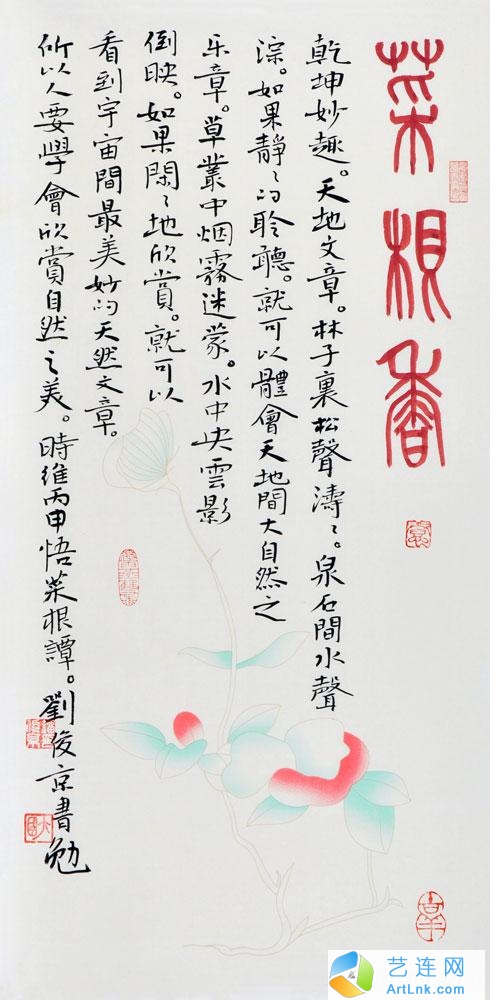 菜根香
乾坤妙趣。天地文章。林子裏松聲濤〻。泉石間水聲
淙。如果靜〻的聆聽。就可以體會天地間大自然之
乐章。草叢中烟霧迷蒙。水中央雲影
倒映。如果閑〻地欣賞。就可以
看到宇宙間最美妙的天然文章。
所以人要學會欣賞自然之美。時維丙申悟菜根譚。劉俊京書勉
艺连网
ArtLnk.com